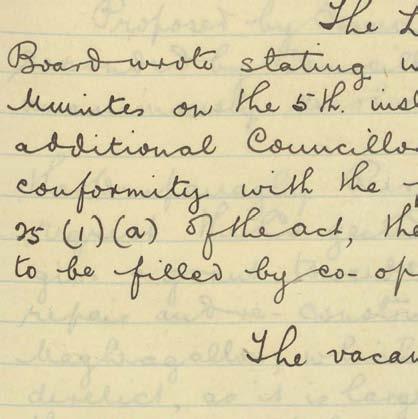 The L
Board wrote stating
Minutes on the 5th. inst
additional Councillo
conformity with the
25 (1)(a) of the act, the
to be filled by co-op
The vacan